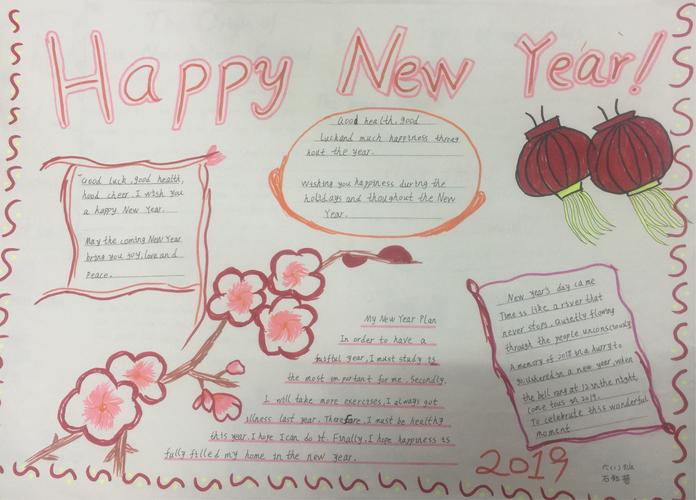 Happy New Year!
Good health, good
luckand much happiness throug
hout the year.
Wishing you happiness during the
holidays and thoughout the New
Year.
"Good luck, good health,
hood cheer. I wish you
a happy New Year.
May the coming New Year
bring you joy, love and
Peace.
My New Year Plan
In order to have a
fruitful year, I must study is
the most important for me. Secondly,
I will take more exercises, I always got
illness last year. Therefore, I must be healthy
this year. I hope I can do it. Finally, I hope happiness is
fully filled my home in the new year.
New Year's day came
Time is like a river that
never stops. Quietly flowing
through the people unconsciously
A memory of 2018 in a hurry to
in a new year, when
the bell rang at 12 in the night,
come to us in 2019.
To celebrate this wonderful
moment
2019